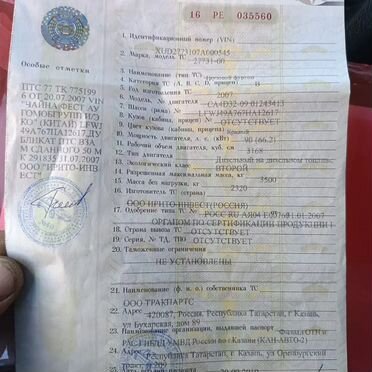 16 РЕ 035560
Особые отметки
ПТС 77 ТК 775199
6 ОТ 20.07.2007 VIN
"ЧАЙНАФЕСТ АУ
(КИТАЙ)
49A767HA12617, ДУ
БЛИКАТ ПТС ВЗА
М СДАННОГО 50 М
К 291835 31.07.2007
ООО "ИРИТО-ИНВ
ЕСТ"
1. Идентификационный номер (VIN)
XUD2773107A000545
2. Марка, модель ТС 27731-00
3. Наименование (тип ТС) Грузовой фургон
4. Категория ТС (А, В, С, D, прицеп) В
5. Год изготовления ТС 2007
6. Модель, № двигателя CA4D32-09 01243413
7. Шасси (рама) №
8. Кузов (кабина, прицеп) № ОТСУТСТВУЕТ
9. Цвет кузова (кабины, прицепа)
90 (66.2)
11. Рабочий объем двигателя, куб. см 3168
12. Тип двигателя
13. Экологический класс ВТОРОЙ
14. Разрешенная максимальная масса, кг 3500
15. Масса без нагрузки, кг 2320
ООО ИРИТО-ИНВЕСТ(РОССИЯ)
17. Одобрение типа ТС №
ОРГАНОМ ПО СЕРТИФИКАЦИИ ПРОДУКЦИИ
18. Страна вывоза ТС ОТСУТСТВУЕТ
19. Серия, № ТД, ТПО ОТСУТСТВУЕТ
20. Таможенные ограничения
НЕ УСТАНОВЛЕНЫ
21. Наименование (ф. и. о.) собственника ТС
ООО ТРАКПАРТС
22. Адрес 420087, Россия, Республика Татарстан, г Казань,
ул Бухарская, дом 89
23. Наименование организации, выдавшей паспорт
МВД России по г.Казани (КАН-АВТО-2)
24. Адрес Республика Татарстан, г. Казань, ул Оренбургский
тракт, д.209